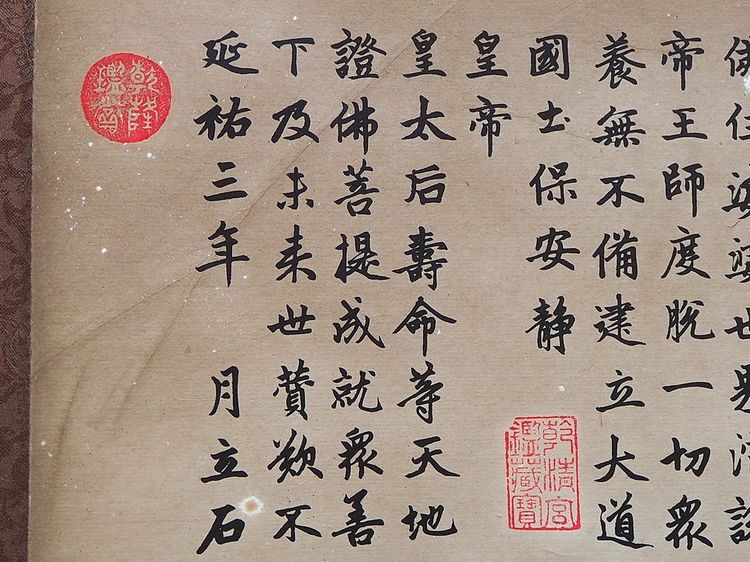 佛住娑婆世界演說
帝王師度脫一切衆
養無不備建立大道
國土保安靜
乾清宮
鑑藏寶
皇帝
皇太后壽命等天地
證佛菩提成就衆善
下及未来世賛歎不
延祐三年 月立石
乾隆
鑑賞